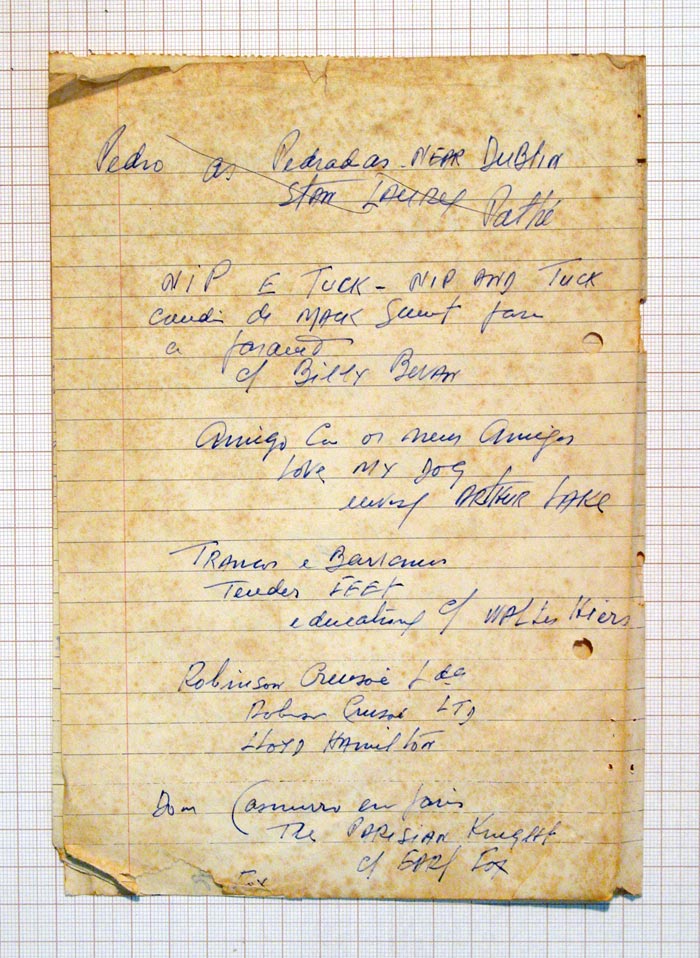 Pedro as Pedradas - NEAR DUBLIN
STAN LAUREL Pathé
NIP E TUCK - NIP AND TUCK
de MACK
a
c/ BILLY BEVAN
Amigo os meus Amigos
LOVE MY DOG
ARTHUR LAKE
TRANCOS e Barrancos
Tender FEET
educational c/ WALTER Hiers
Robinson Crusoé Lda
Robinson Crusoé LTD
LLOYD HAMILTON
Dom Casmurro em Paris
The PARISIAN Knight
c/ EARL Fox
Fox